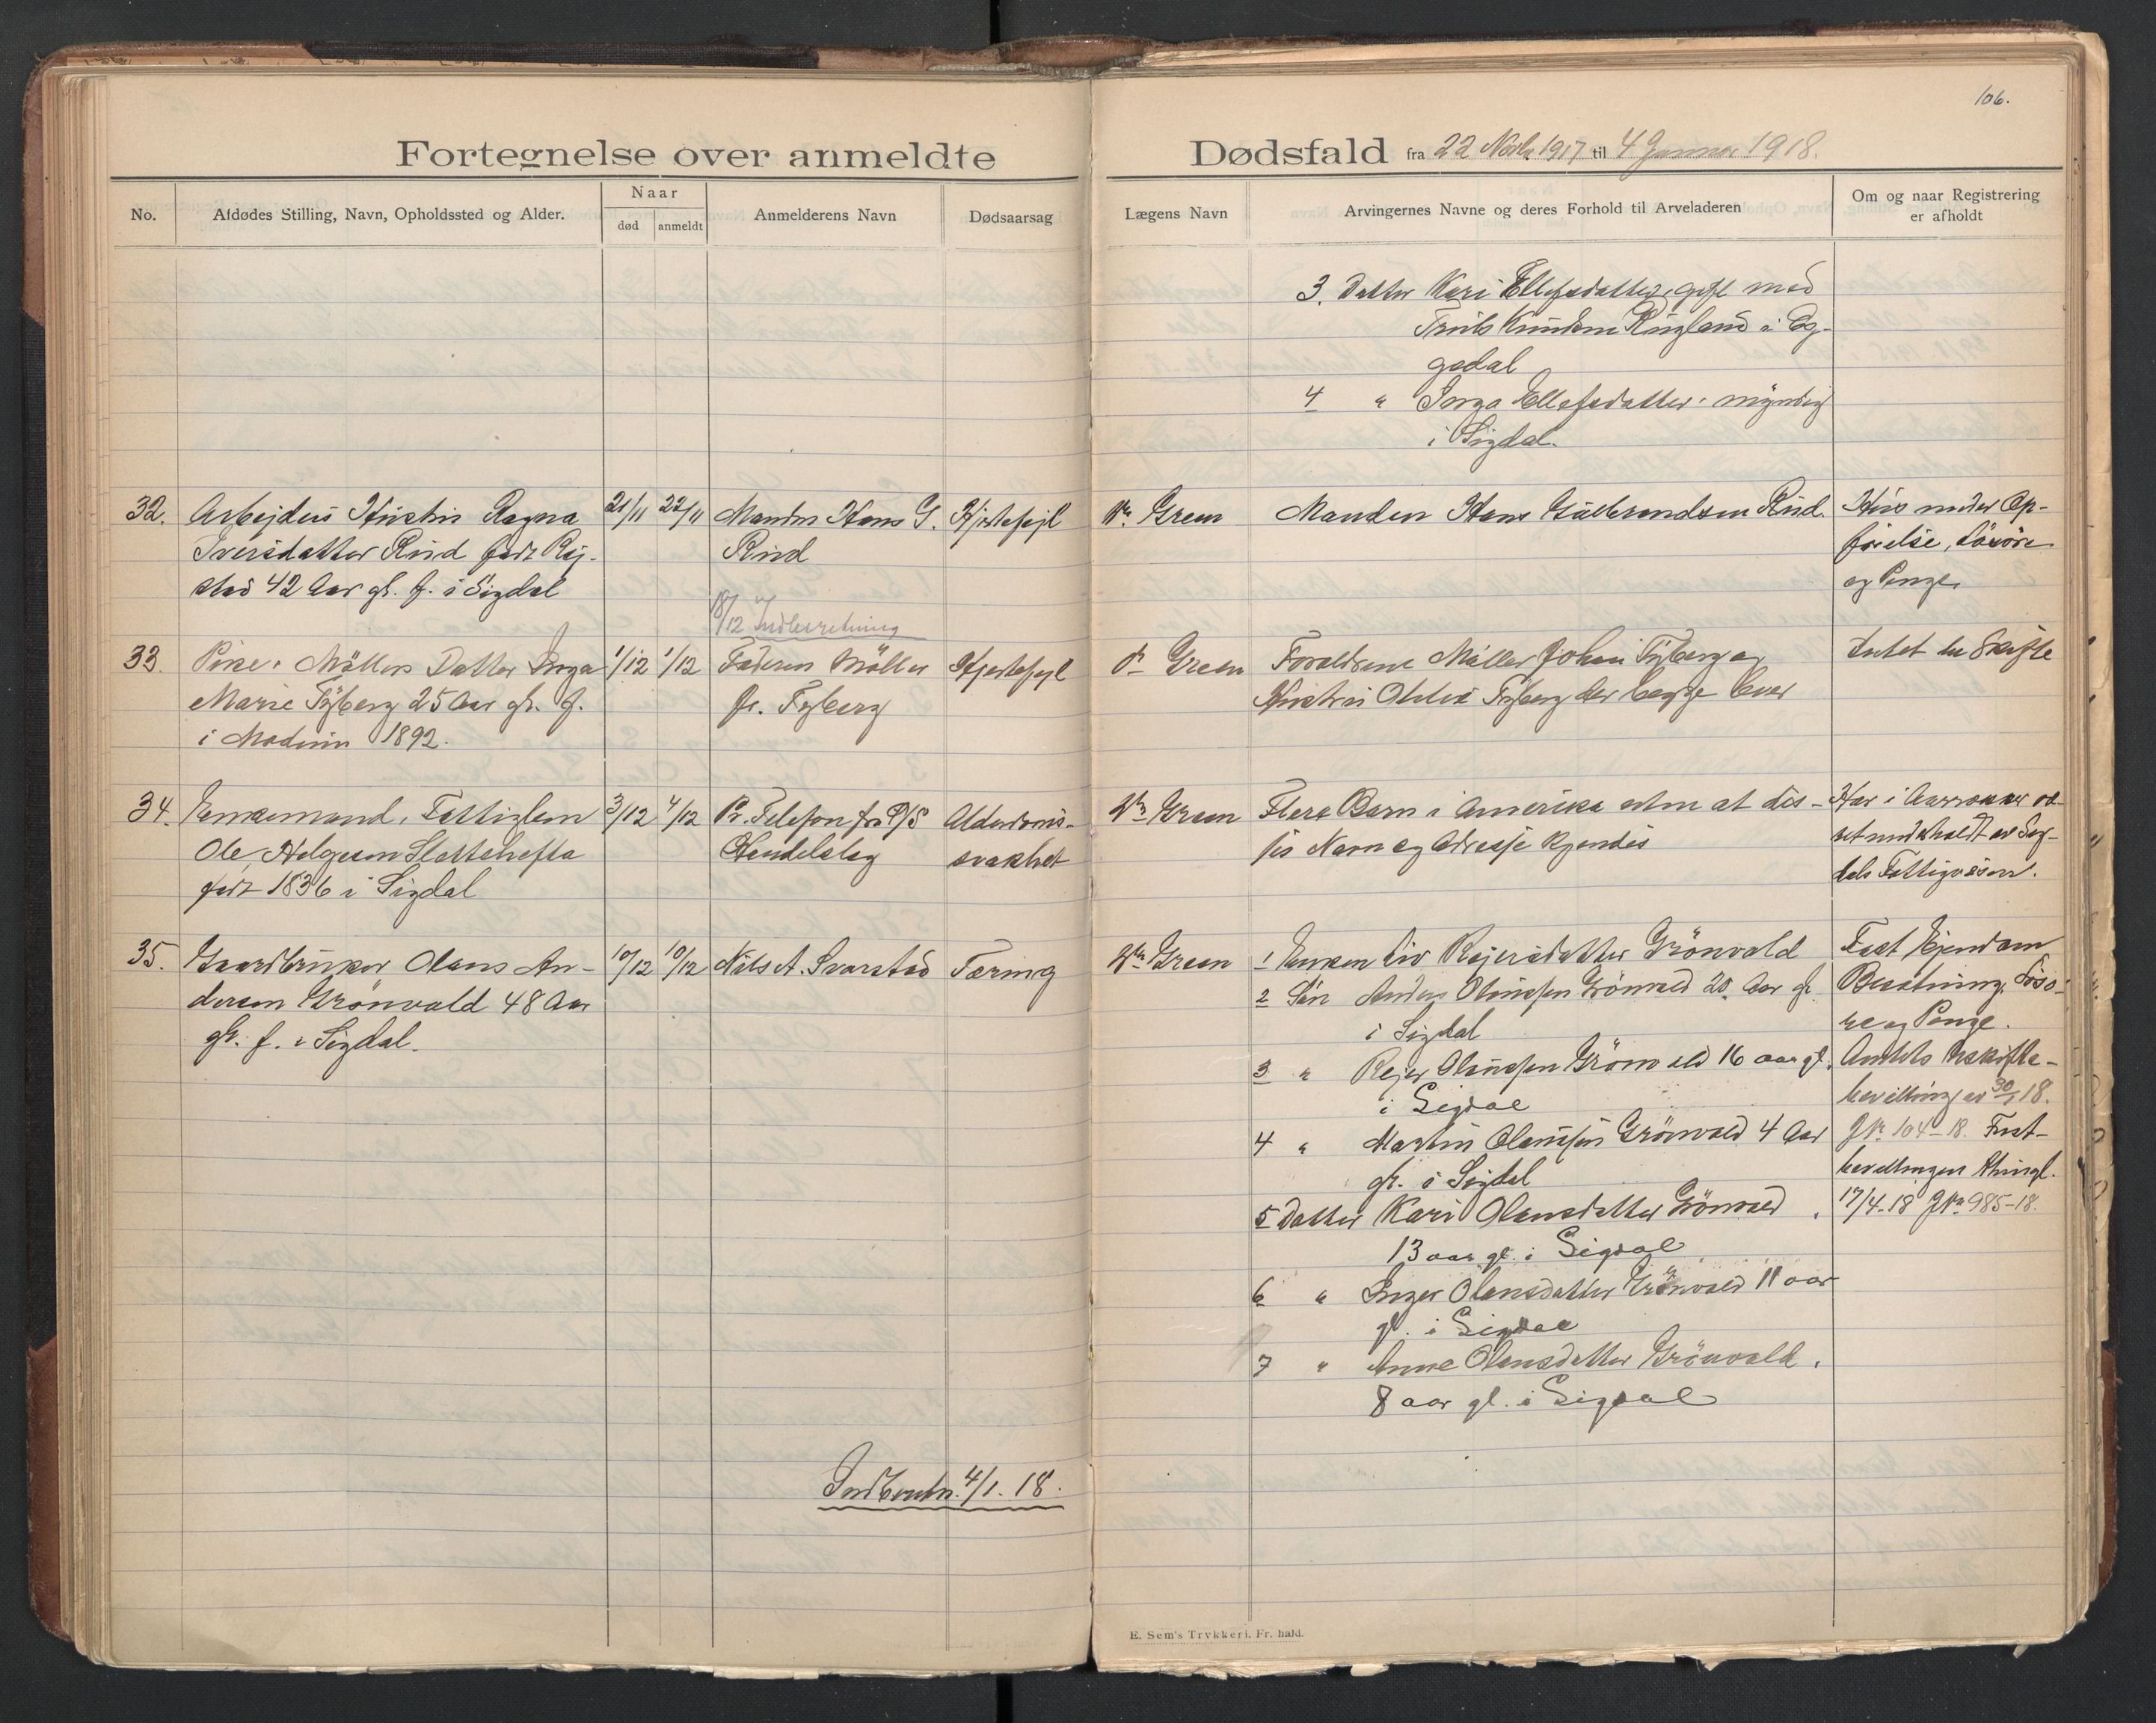 106.
Fortegnelse over anmeldte Dødsfald fra 22 Novbr 1917 til 4 Januar 1918.
No.
Afdødes Stilling, Navn, Opholdssted og Alder.
Naar
død
anmeldt
Anmelderens Navn
Dødsaarsag
Lægens Navn
Arvingernes Navne og deres Forhold til Arveladeren
Om og naar Registrering
er afholdt
3. Datter Kari Ellefsdatter, gift med
Truls Knudsen Rugland i Eg-
gedal
4 " Inga Ellefsdatter, myndig
i Sigdal.
32. Arbejders Hustru Ragna
Iversdatter Rud født
stad 42 Aar gl. f. i Sigdal
21/11 22/11
Manden Hans G.
Rud
Hjertefejl
Dr. Green
Manden Hans Gulbrandsen Rud.
Hus under Op-
førelse, Løsøre
og Penge
18/12 Indberetning
33. Pike, Møllers Datter Inga
Marie Fyberg 25 Aar gl. f.
i Modum 1892.
1/12 1/12
Faderen Møller
Jr. Fyberg
Hjertefejl
Dr Green
Forældrene Møller Johan Fyberg og
Hustru Fyberg der begge lever
Intet til Skifte
34. Enkemand, Fattiglem
Ole Helgesen Slettehefta
født 1836 i Sigdal
3/12 4/12
Pr. Telefon fra P/S
Handelslag
Alderdoms-
svakhet
Dr Green
Flere Barn i Amerika uten at dis-
ses Navn og Adresse kjendes
Har i Aarrækker væ-
ret underholdt av Sig-
dals Fattigvæsen.
35. Gaardbruker Olaus An-
dersen Grönvold 48 Aar
gl. f. i Sigdal.
10/12 10/12
Nils A. Svarstad
Tæring
Dr Green
1 Enken Liv Rejersdatter Grönvold
2 Søn Anders Olaussen Grönvold 20 Aar gl.
i Sigdal
3 " Rejer Olaussen Grönvold 16 aar gl.
i Sigdal
4 " Martin Olaussen Grönvold 4 Aar
gl. i Sigdal
5 Datter Kari Olausdatter Grönvold,
13 aar gl. i Sigdal
6 " Inger Olausdatter Grönvold 11 aar
gl. i Sigdal
7 " Anne Olausdatter Grönvold,
8 aar gl. i Sigdal
Fast Ejendom
Besætning, Løsø-
re og Penge.
Amtets Uskifte-
bevilling av 30/1 18.
JNr. 104-18.
bevillingen thingl.
17/4-18 JNr 985-18.
Indberetn. 4/1. 18.
E. Sem's Trykkeri. Fr. hald.